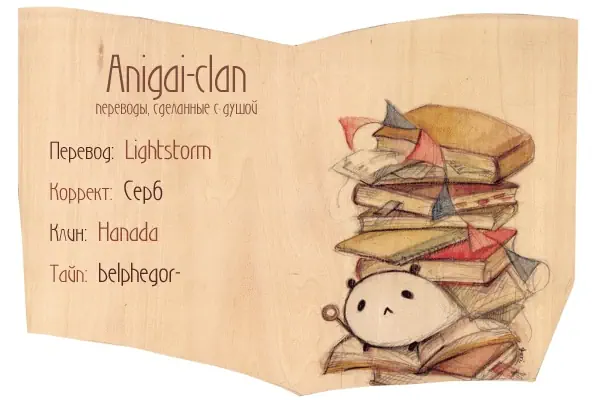 Anigai-clan
переводы, сделанные с душой
Перевод: Lightstorm
Коррект: Серб
Клин: Hanada
Тайп: belphegor-